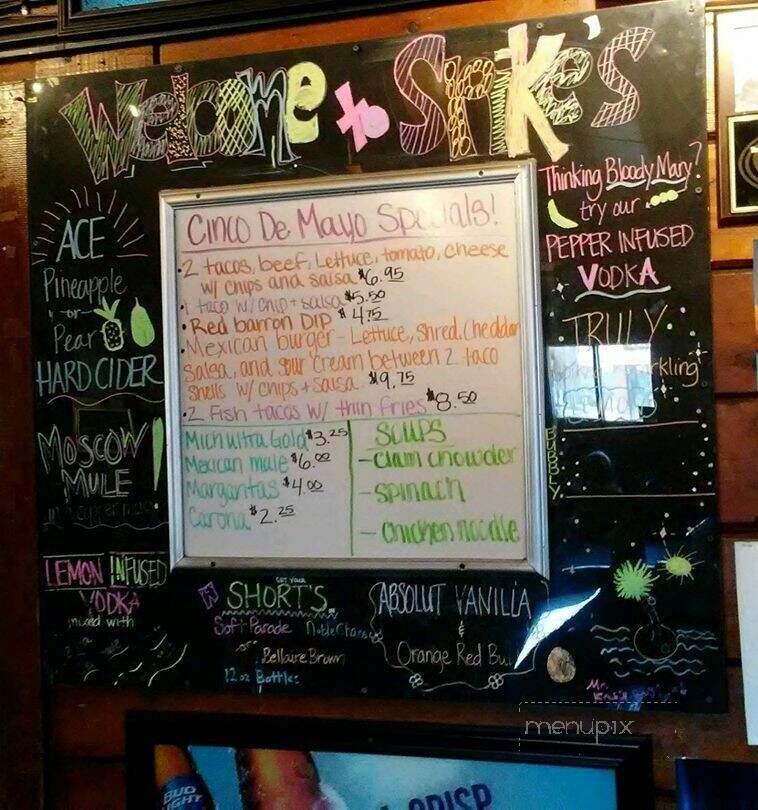 Welcome to Sirike's
ACE
Pineapple
-or-
Pear
HARD CIDER
MOSCOW
MULE
LEMON INFUSED
VODKA
mixed with
Cinco De Mayo Specials!
• 2 tacos, beef, Lettuce, tomato, cheese
w/ chips and salsa $6.95
• 1 taco w/ chip + salsa $5.50
• Red barron Dip $4.75
• Mexican burger - Lettuce, shred. Cheddar
salsa, and sour cream between 2 taco
shells w/ chips + salsa $9.75
• 2 Fish tacos w/ thin fries $8.50
Mich ultra Gold $3.25
Mexican mule $6.00
Margaritas $4.00
Carona $2.25
SOUPS
- Clam chowder
- spinach
- chicken noodle
Thinking Bloody Mary?
try our
PEPPER INFUSED
VODKA
TRULY
BUBBLY
GET YOUR
SHORT'S
Soft Parade
-or-
Bellaire Brown
12 oz Bottles
ABSOLUT VANILIA
&
Orange Red Bull
menupix
BUD
LIGHT
CRISP